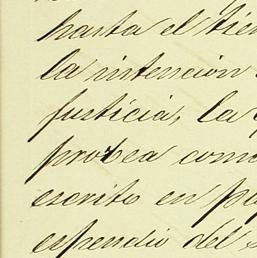 hasta el tien
la intencion
justicia, la
probea como
escrito en pa
espendio del